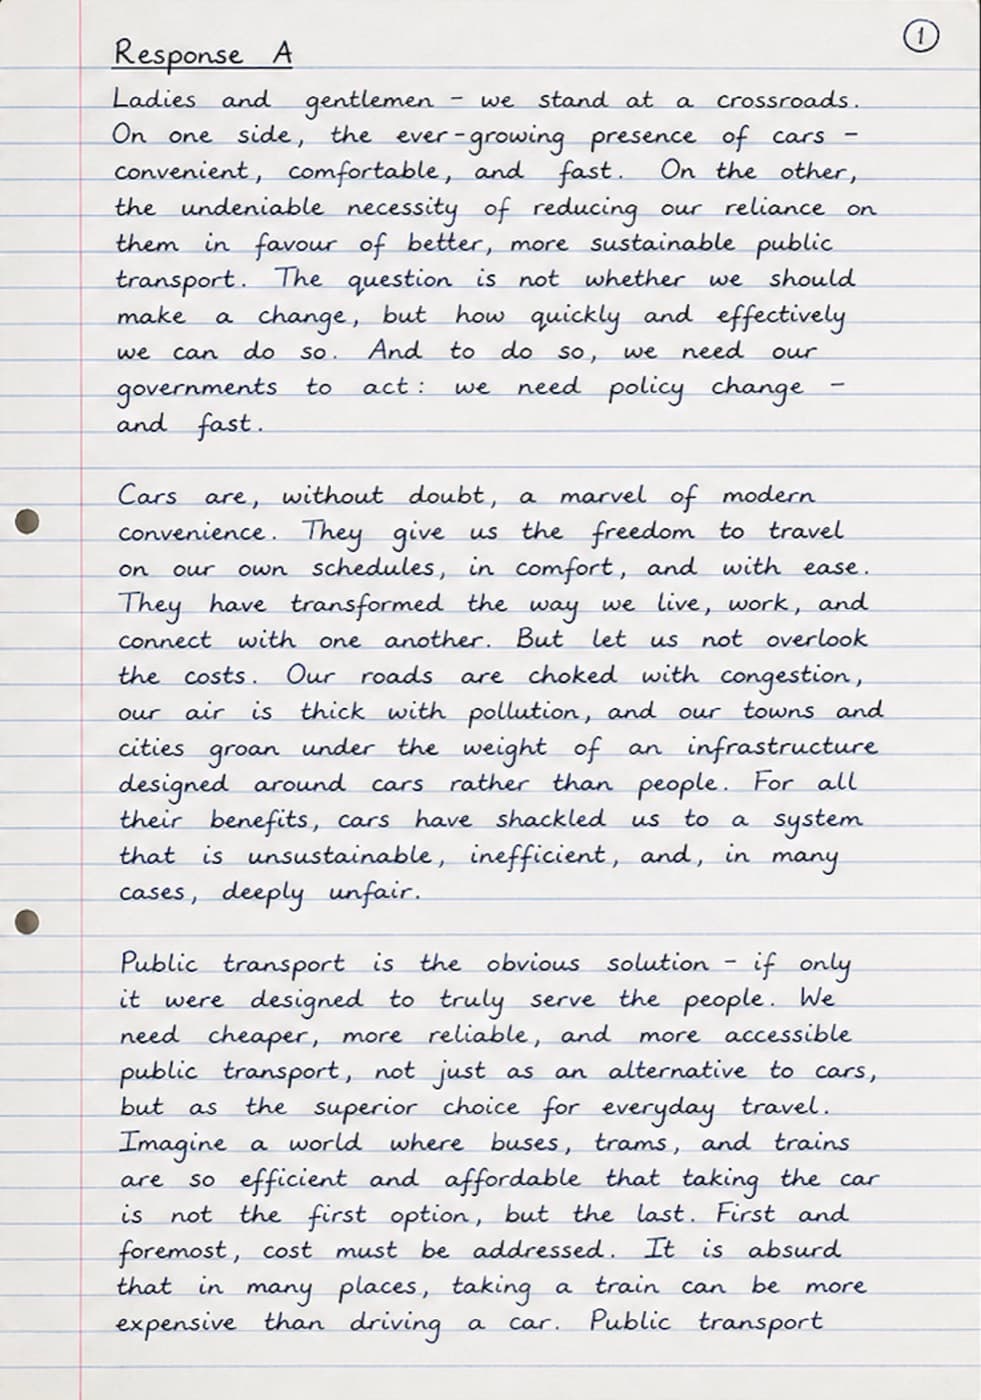 1
Response A
Ladies and gentlemen - we stand at a crossroads.
On one side, the ever-growing presence of cars -
convenient, comfortable, and fast. On the other,
the undeniable necessity of reducing our reliance on
them in favour of better, more sustainable public
transport. The question is not whether we should
make a change, but how quickly and effectively
we can do so. And to do so, we need our
governments to act: we need policy change -
and fast.
Cars are, without doubt, a marvel of modern
convenience. They give us the freedom to travel
on our own schedules, in comfort, and with ease.
They have transformed the way we live, work, and
connect with one another. But let us not overlook
the costs. Our roads are choked with congestion,
our air is thick with pollution, and our towns and
cities groan under the weight of an infrastructure
designed around cars rather than people. For all
their benefits, cars have shackled us to a system
that is unsustainable, inefficient, and, in many
cases, deeply unfair.
Public transport is the obvious solution - if only
it were designed to truly serve the people. We
need cheaper, more reliable, and more accessible
public transport, not just as an alternative to cars,
but as the superior choice for everyday travel.
Imagine a world where buses, trams, and trains
are so efficient and affordable that taking the car
is not the first option, but the last. First and
foremost, cost must be addressed. It is absurd
that in many places, taking a train can be more
expensive than driving a car. Public transport